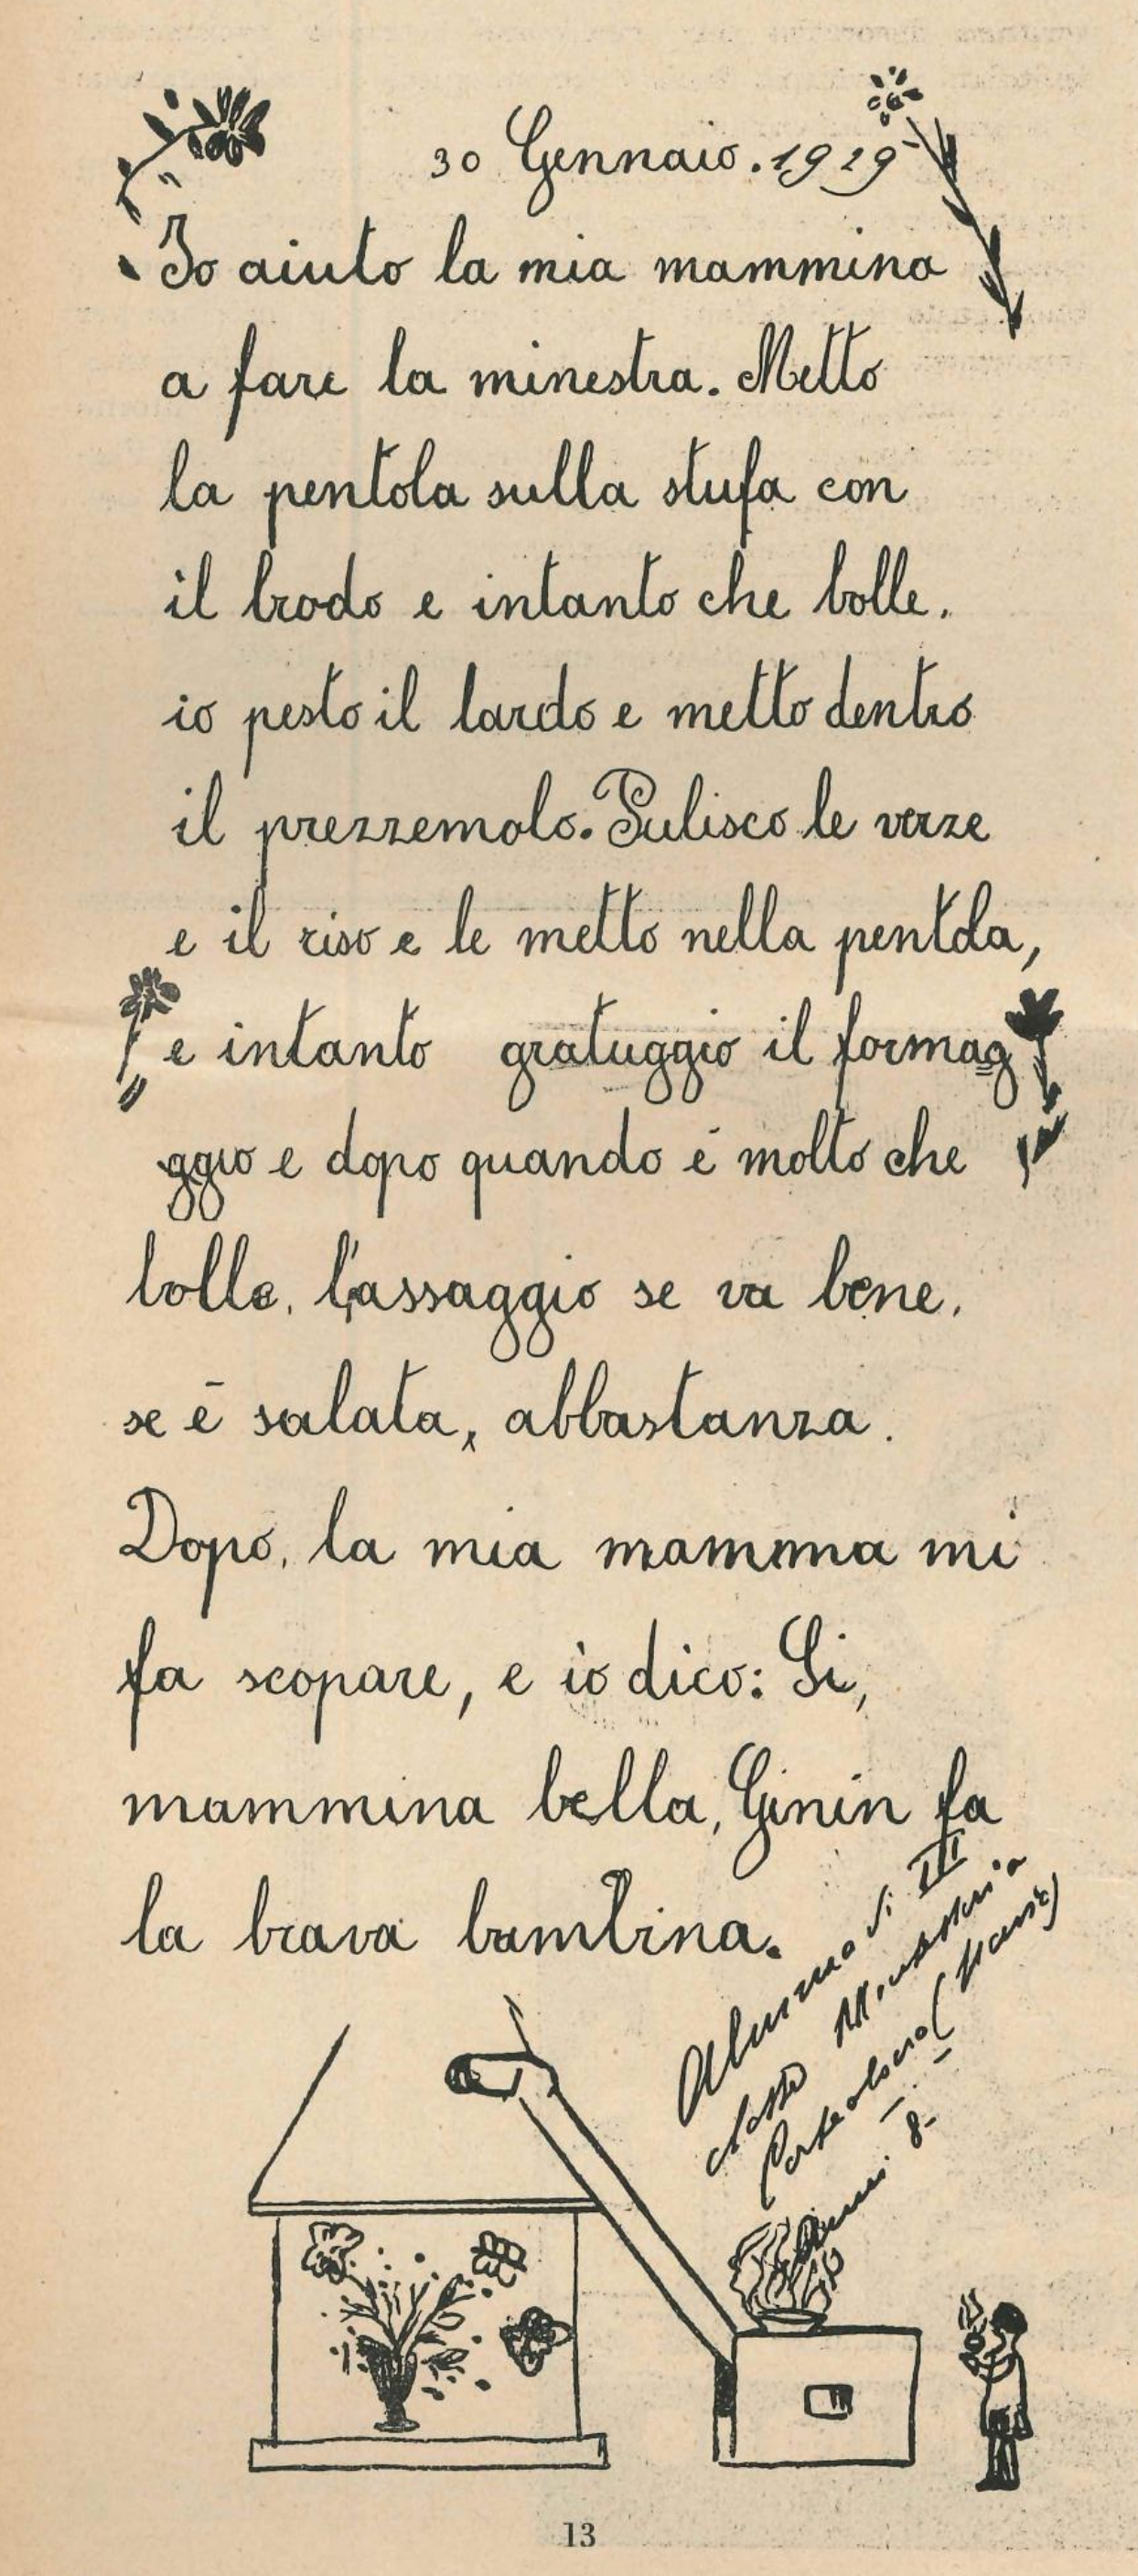 30 Gennaio. 1929
Io aiuto la mia mammina
a fare la minestra. Metto
la pentola sulla stufa con
il brodo e intanto che bolle.
io pesto il lardo e metto dentro
il prezzemolo. Pulisco le verze
e il riso e le metto nella pentola,
e intanto gratuggio il formag
ggio e dopo quando é molto che
bolle, l'assaggio se va bene.
se é salata, abbastanza.
Dopo, la mia mamma mi
fa scopare, e ìo dico: Si,
mammina bella, Ginin fa
la brava bambina.
Alunno di III
classe
anni 8-
13